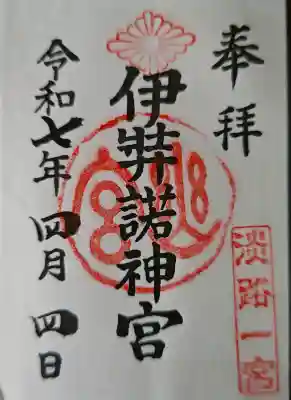 奉拝
淡路一宮
伊弉諾神宮
令和七年 四月 四日